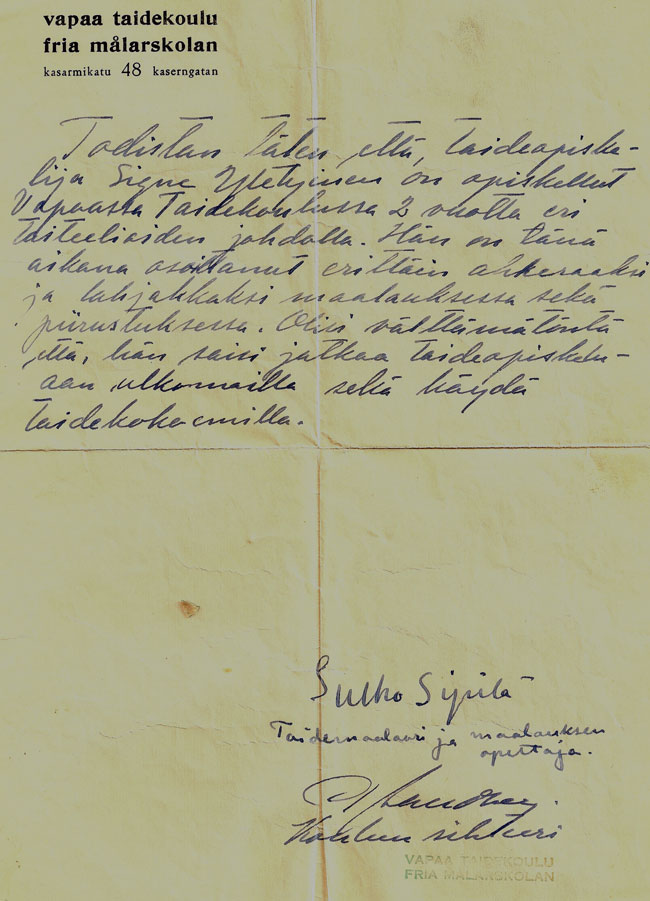 vapaa taidekoulu
fria målarskolan
kasarmikatu 48 kaserngatan
Todistan täten että, taideopiske-
lija Signe Yletyinen on opiskellut
Vapaassa Taidekoulussa 2 vuotta eri
taiteilioiden johdolla. Hän on tänä
aikana osoittanut erittäin ahkeraaksi
ja lahjakkaksi maalauksessa sekä
piirustuksessa. Olisi välttämätöntä
että, hän saisi jatkaa taideopiskelu-
aan ulkomailla sekä käydä
taidekokoemilla.
Sulho Sipilä
Taidemaalari ja maalauksen
opettaja.
Koulun sihteeri
VAPAA TAIDEKOULU
FRIA MÅLARSKOLAN